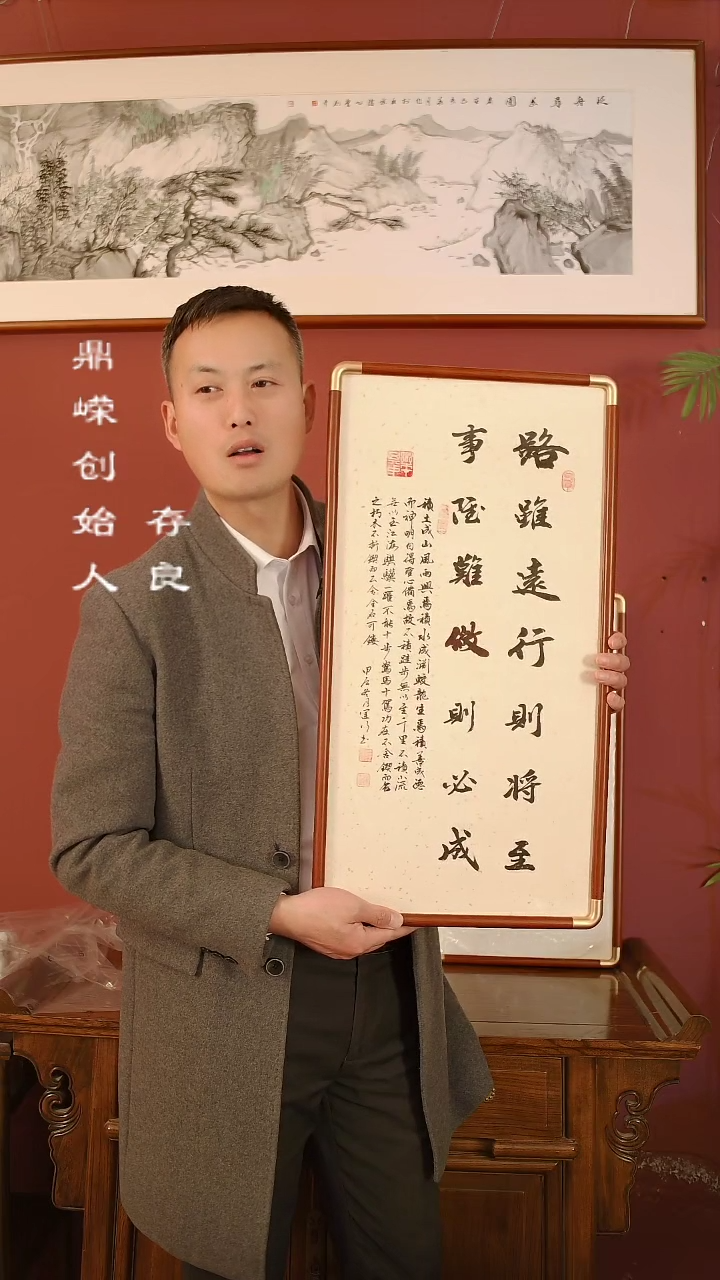 鼎嵘创始人
存良
路雖遠行則将至
事雖難做則必成
積土成山風雨興焉積水成淵蛟龍生焉積善成德
而神明自得聖心備焉故不積跬步無以至千里不積小流
無以至江海騏驥一躍不能十步駑馬十駕功在不舍鍥而舍
之朽木不折鍥而不舍金石可鏤
甲辰